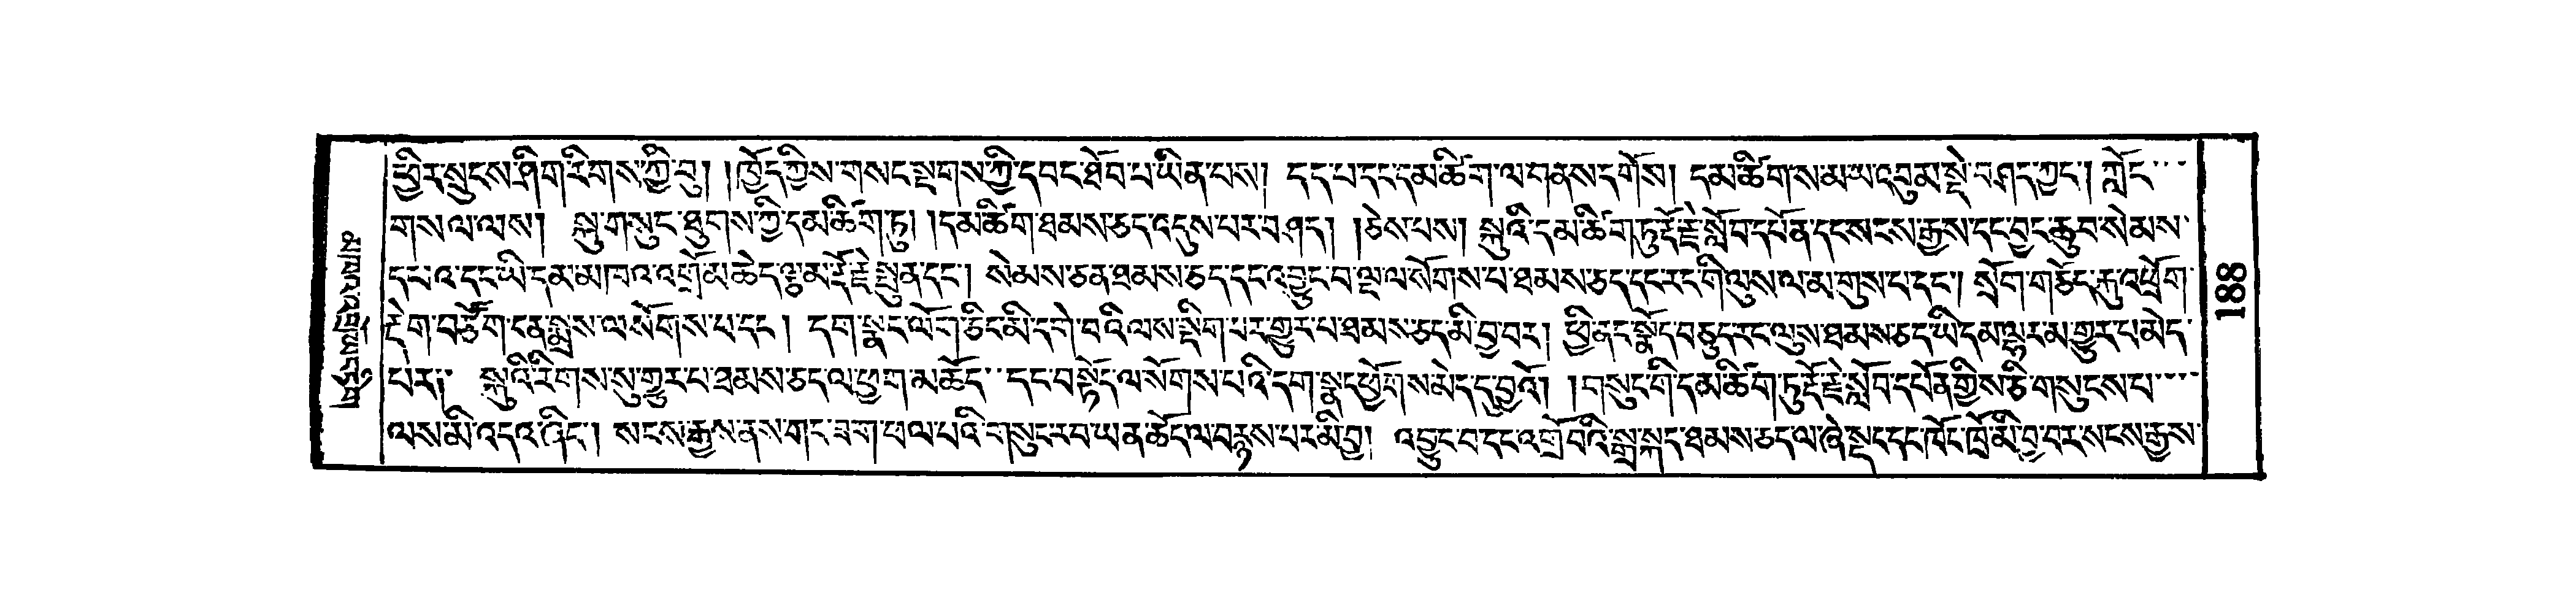 ཕྱིར་སྲུངས་ཤིག་རིགས་ཀྱི་བུ། །ཁྱོད་ཀྱིས་གསང་སྔགས་ཀྱི་དབང་ཐོབ་པ་ཡིན་པས། དད་པ་དང་དམ་ཚིག་ལ་གནས་དགོས། དམ་ཚིག་ས་མ་ཡ་འབུམ་སྡེ་བཤད་ཀྱང་། ཀློང་
གས་ལ་ལས། སྐུ་གསུང་ཐུགས་ཀྱི་དམ་ཚིག་ཏུ། །དམ་ཚིག་ཐམས་ཅད་འདུས་པར་བཤད། །ཅེས་པས། སྐུའི་དམ་ཚིག་ཏུ་རྡོ་རྗེ་སློབ་དཔོན་དང་སངས་རྒྱས་དང་བྱང་ཆུབ་སེམས་
དཔའ་དང་ཡི་དམ་མཁའ་འགྲོ་མཆེད་ལྕམ་རྡོ་རྗེ་སྤུན་དང་། སེམས་ཅན་ཐམས་ཅད་དང་འབྱུང་བ་ལྔ་ལ་སོགས་པ་ཐམས་ཅད་དང་རང་གི་ལུས་ལ་མ་གུས་པ་དང་། སྲོག་གཅོད་རྐུ་འཕྲོག་
རྡེག་བཙོག་ངན་སྨྲས་ལ་སོགས་པ་དང་། དག་སྣང་ལོག་ཅིང་མི་དགེ་བའི་ལས་སྡིག་པར་གྱུར་པ་ཐམས་ཅད་མི་བྱ་བར། ཕྱི་ནང་སྣོད་བཅུད་རང་ལུས་ཐམས་ཅད་ཡི་དམ་ལྷར་མ་གྱུར་པ་མེད་
པར། སྐུའི་རིགས་སུ་གྱུར་པ་ཐམས་ཅད་ལ་ཕྱག་མཆོད་དང་བསྟོད་ལ་སོགས་པའི་དག་སྣང་ཕྱོགས་མེད་དུ་བྱའོ། །གསུང་གི་དམ་ཚིག་ཏུ་རྡོ་རྗེ་སློབ་དཔོན་གྱིས་ཅི་གསུངས་པ་
ལས་མི་འདའ་ཞིང་། སངས་རྒྱས་ནས་གང་ཟག་ཕལ་པའི་གསུང་རབ་ཡན་ཆོད་ལ་བརྙས་པར་མི་བྱ། འབྱུང་བ་དང་འགྲོ་བའི་སྒྲ་སྐད་ཐམས་ཅད་ལ་ཞེ་སྡང་དང་ཁོང་ཁྲོ་མི་བྱ་བར་སངས་རྒྱས་
188